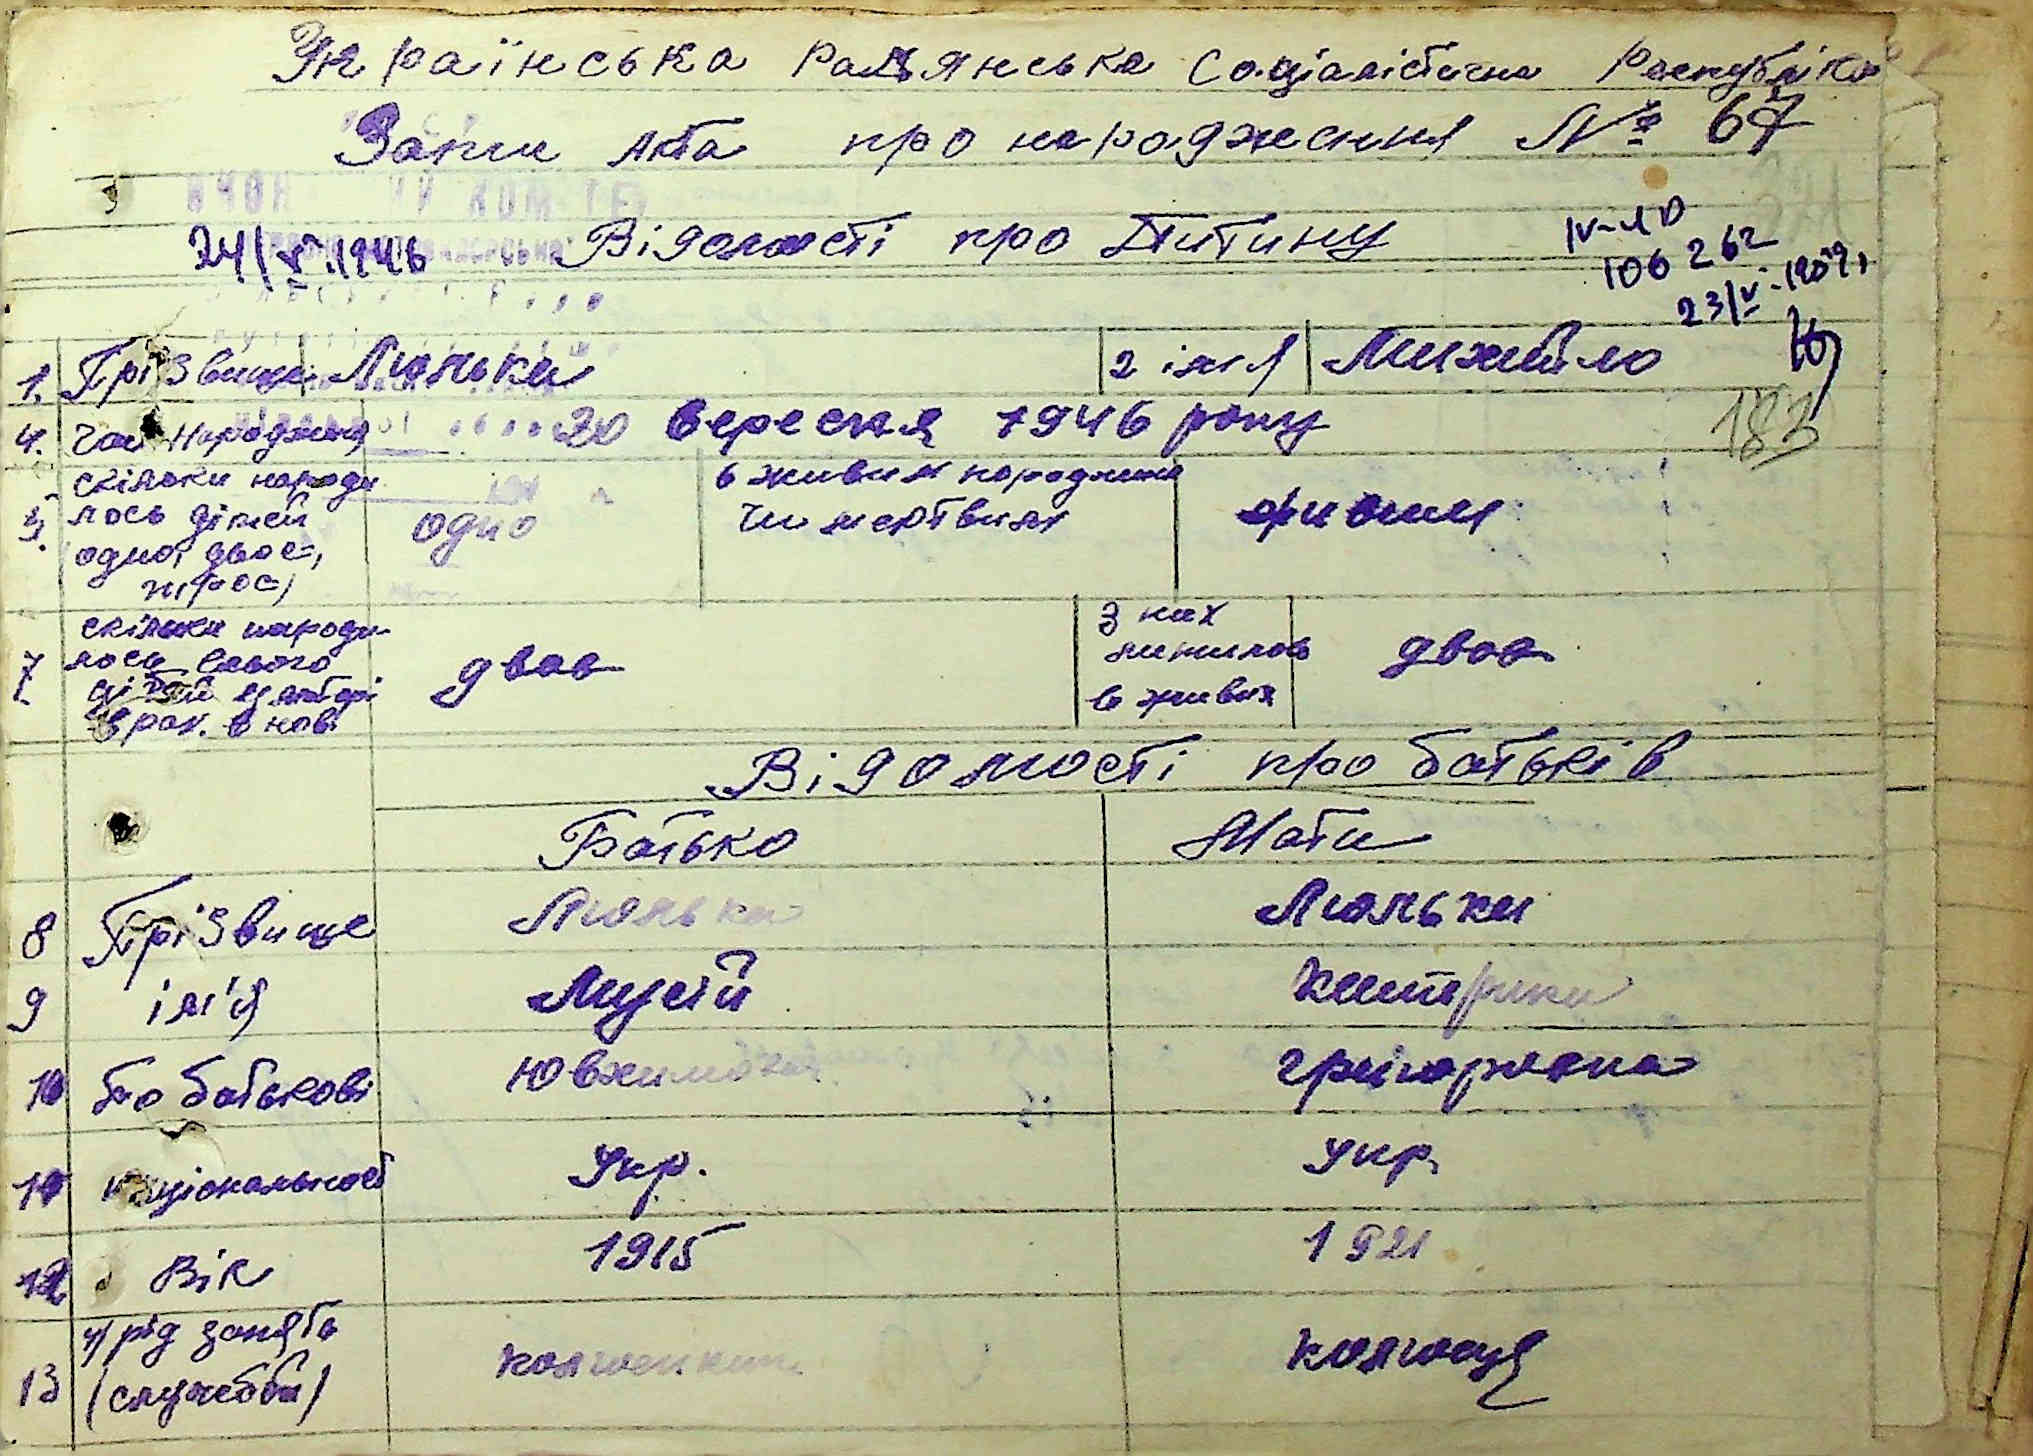 Українська Радянська Соціалістична Республіка
Запис Акта про народження № 67
24/V.1946 Відомості про Дитину
IV-ЛО
106 262
23/V-
1. Прізвище Люлька 2 ім'я Михайло
183
4. Час народження 20 вересня 1946 року
5. скільки народи
лось дітей
одно, двоє,
троє)
одно
6 живим народжен
чи мертвим
живим
7 скільки народи
лось всього
дітей у матері
двоє
з них
лишилось
в живих
двоє
Відомості про батьків
Батько Мати
8 Прізвище Люлька Люльки
9 ім'я Мусій
10 По батькові Юхимович Григорівна
11 національність Укр. Укр.
12 Вік 1915 1921
13 рід занять
(служебби)
колгоспник